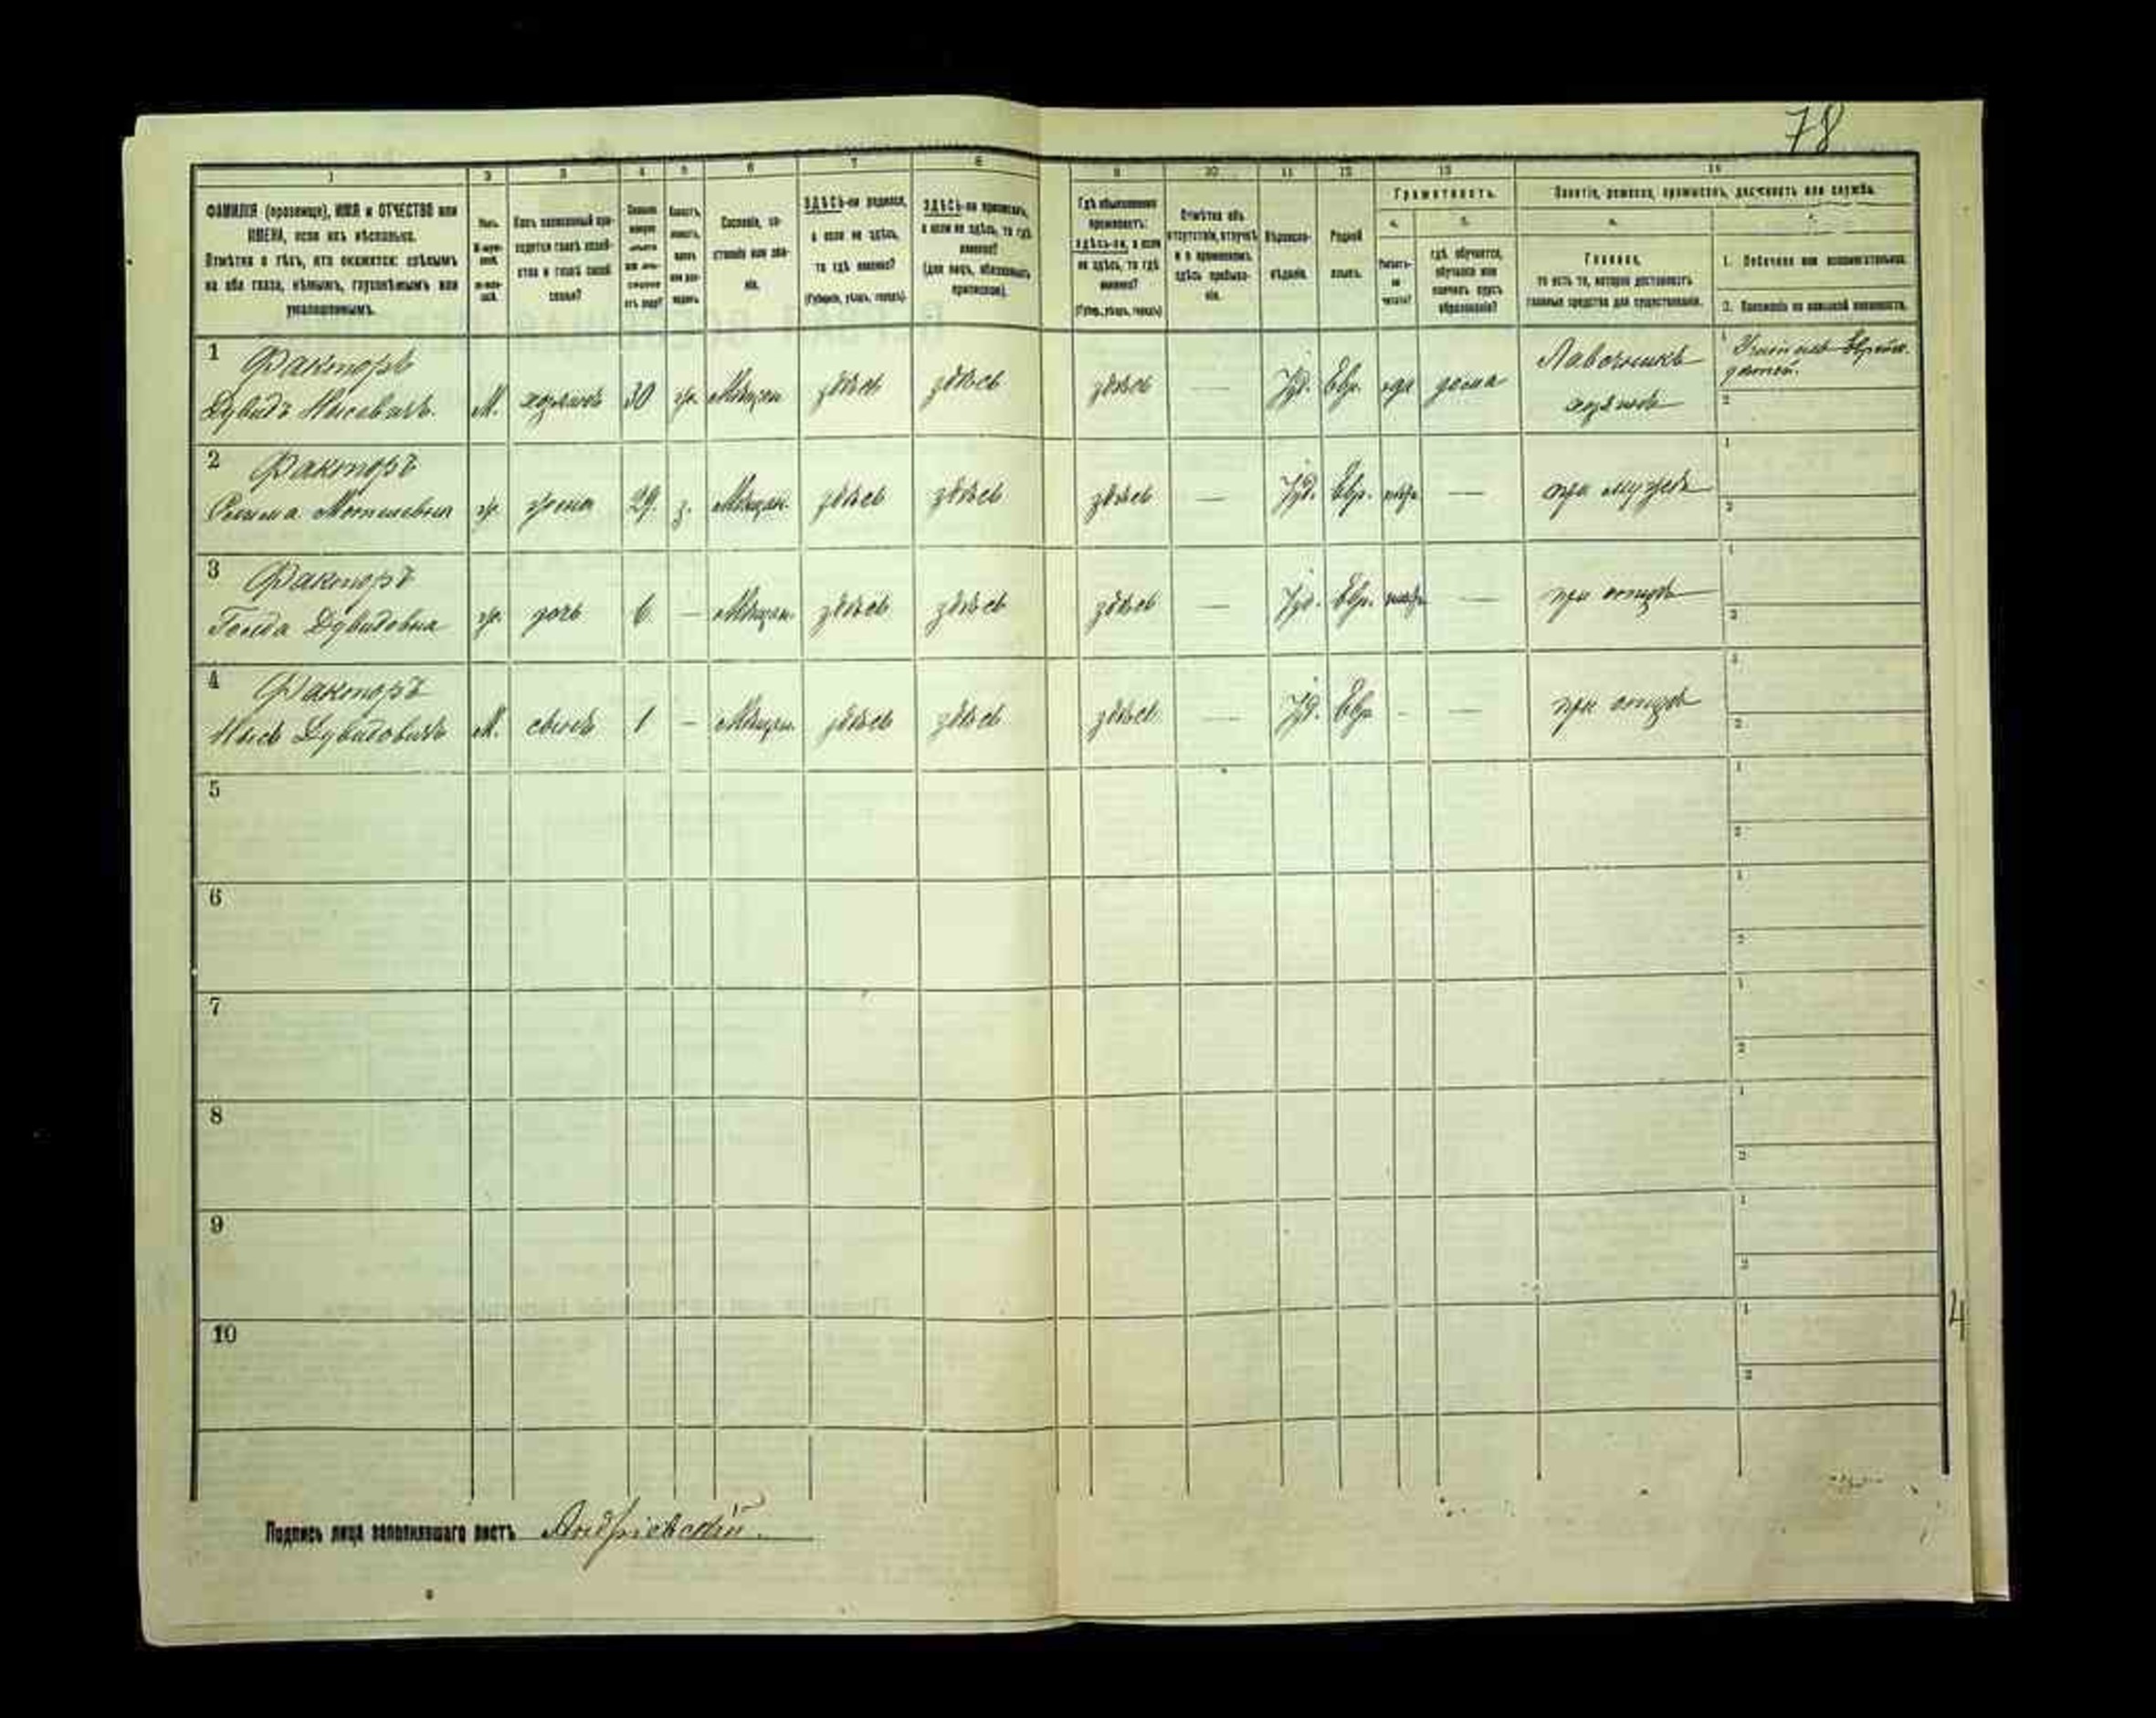 78
1 2 3 4 5 6 7 8 9 10 11 12 13 14
ФАМИЛІЯ (прозвище), ИМЯ и ОТЧЕСТВО или
ИМЕНА, если ихъ нѣсколько.
Отмѣтка о тѣхъ, кто окажется: слѣпымъ
на оба глаза, нѣмымъ, глухонѣмымъ или
умалишеннымъ.
Полъ.
Сословіе, со-
стояніе или зва-
ніе.
ЗДѢСЬ-ли родился,
а если не здѣсь,
то гдѣ именно?
(Губернія, уѣздъ, городъ).
ЗДѢСЬ-ли приписанъ,
а если не здѣсь, то гдѣ
именно?
(для лицъ, обязанныхъ
припиской).
Гдѣ обыкновенно
проживаетъ:
здѣсь-ли, а если
не здѣсь, то гдѣ
именно?
(Губер., уѣздъ, городъ)
Отмѣтка объ
отсутствіи, отлучкѣ
и о временномъ
здѣсь пребыва-
ніи.
Вѣроиспо-
вѣданіе.
Родной
языкъ.
Грамотность.
а. б.
Умѣетъ-
ли
читать?
гдѣ обучается,
обучался или
кончилъ курсъ
образованія?
Занятіе, ремесло, промыселъ, должность или служба.
а.
Главное,
то есть то, которое доставляетъ
главныя средства для существованія.
1. Побочное или вспомогательное.
2. Положеніе по воинской повинности.
1 Факторъ
Дувидъ Мас­овичъ. М. хозяинъ 30 ж. Мѣщан здѣсь здѣсь здѣсь — Іуд. Евр. да дома Лавочникъ
хозяинъ
дѣтей.
2 Факторъ
ж. жена 29. з. Мѣщан. здѣсь здѣсь здѣсь — Іуд. Евр. — при мужѣ
3 Факторъ
Голда Дувидовна ж. дочь 6 — Мѣщан. здѣсь здѣсь здѣсь — Іуд. Евр. — при отцѣ
4 Факторъ
Дувидовичъ М. сынъ 1 — Мѣщан. здѣсь здѣсь здѣсь — Іуд. Евр. - — при отцѣ
5
6
7
8
9
10
4
Подпись лица заполнявшаго листъ Андріевскій.